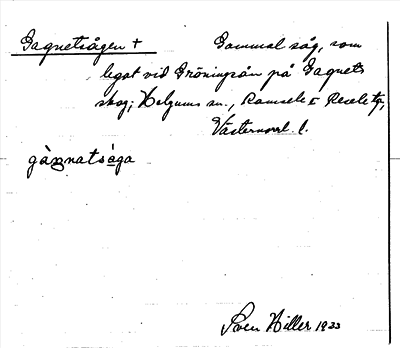 Gagnetsågen + Gammal såg, som
legat vid Gröningsån på Gagnets
skog; Helgums sn., Ramsele o Resele tg,
Västernorrl. l.
gàŋnatsåga
Sven Hiller 1933